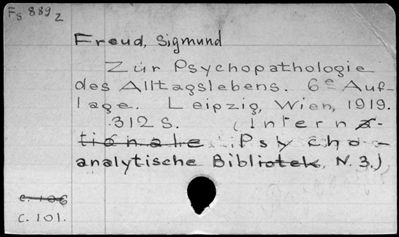 Fs 889 2
Freud, Sigmund
Zur Psychopathologie
des Alltagslebens. 6e Auf-
lage. Leipzig, Wien, 1919.
312 S. (Interna-
tionale Psycho-
analytische Bibliotek, N. 3.)
c. 106
C. 101.